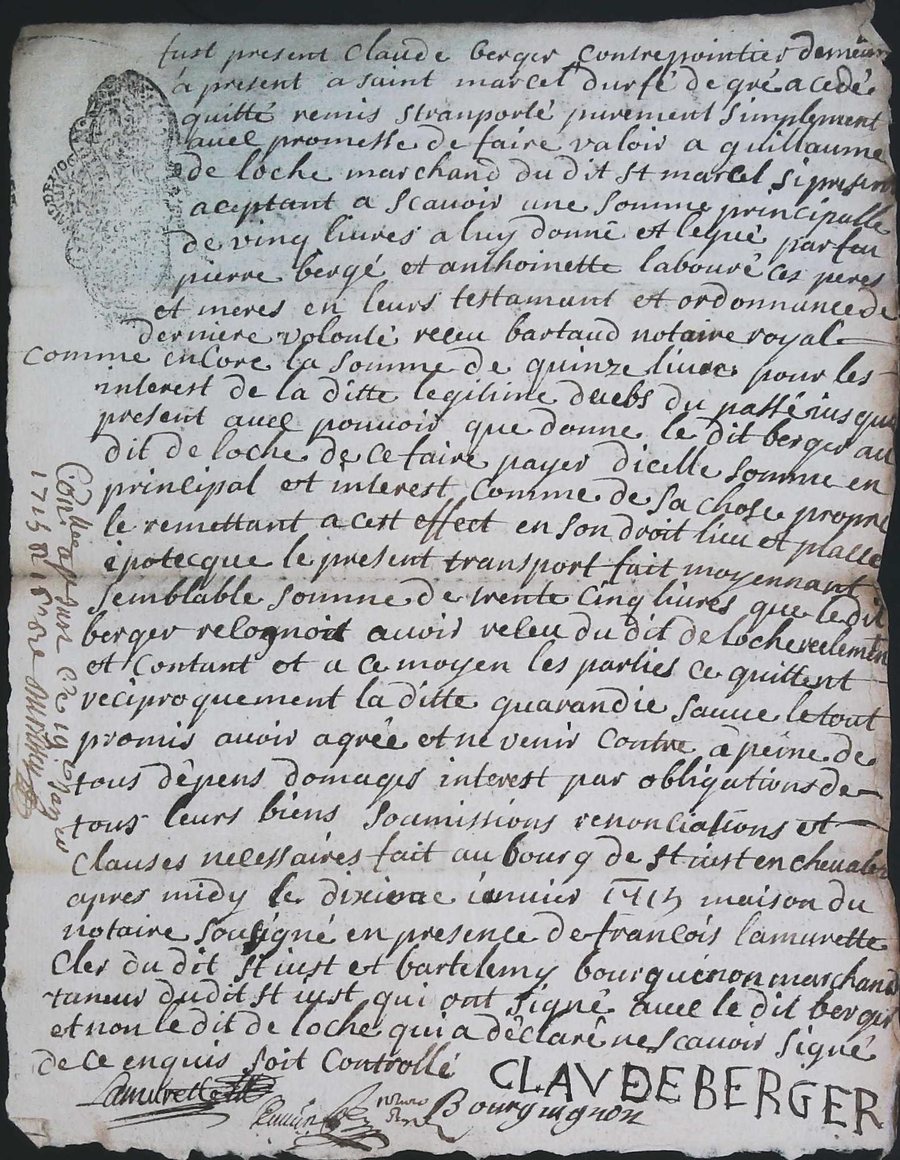 fust present Claude berger contrepointier demeurn
á present a saint marcel durfé de gré a cedé
quitté remis stranporté purement simplement
avel promesse de faire valoir a guillaume
de loche marchand du dit st marcel si present
aceptant a scavoir une somme principalle
de vinq livres a luy donné et legué par feu
pierre bergé et anthoinette labouré ces peres
et meres en leurs testamant et ordonnance de
derniere volonté receu bartaud notaire royal
comme encore la somme de quinze livres pour les
interest de la ditte legitime deubs du passé iusque
present avel pouvoir que donne le dit berger au
dit de loche de ce faire payer dicelle somme en
principal et interest comme de sa chose propre
le remettant a cest effect en son droit lieu et place
ipotecque le present transport fait moyennant
semblable somme de trente cinq livres que le dit
berger relognoit avoir receu du dit de loche reelement
et contant et a ce moyen les parties ce quittent
reciproquement la ditte guarandie sauve le tout
promis avoir agrée et ne venir contre à peine de
tous dêpens domages interest par obligations de
tous leurs biens soumissions renonciations et
clauses necessaires fait au bourg de st iust en chevalet
apres midy le dixieme ianvier 1715 maison du
notaire sousigné en presence de françois lamurette
cler du dit st iust et bartelemy bourguenon marchand
taneur dudit st iust qui ont signé avel le dit berger
et non le dit de loche qui a dêclaré ne scavoir signé
de ce enquis soit controllé
CLAVDE BERGER
Lamurette
Bourguignon
1715